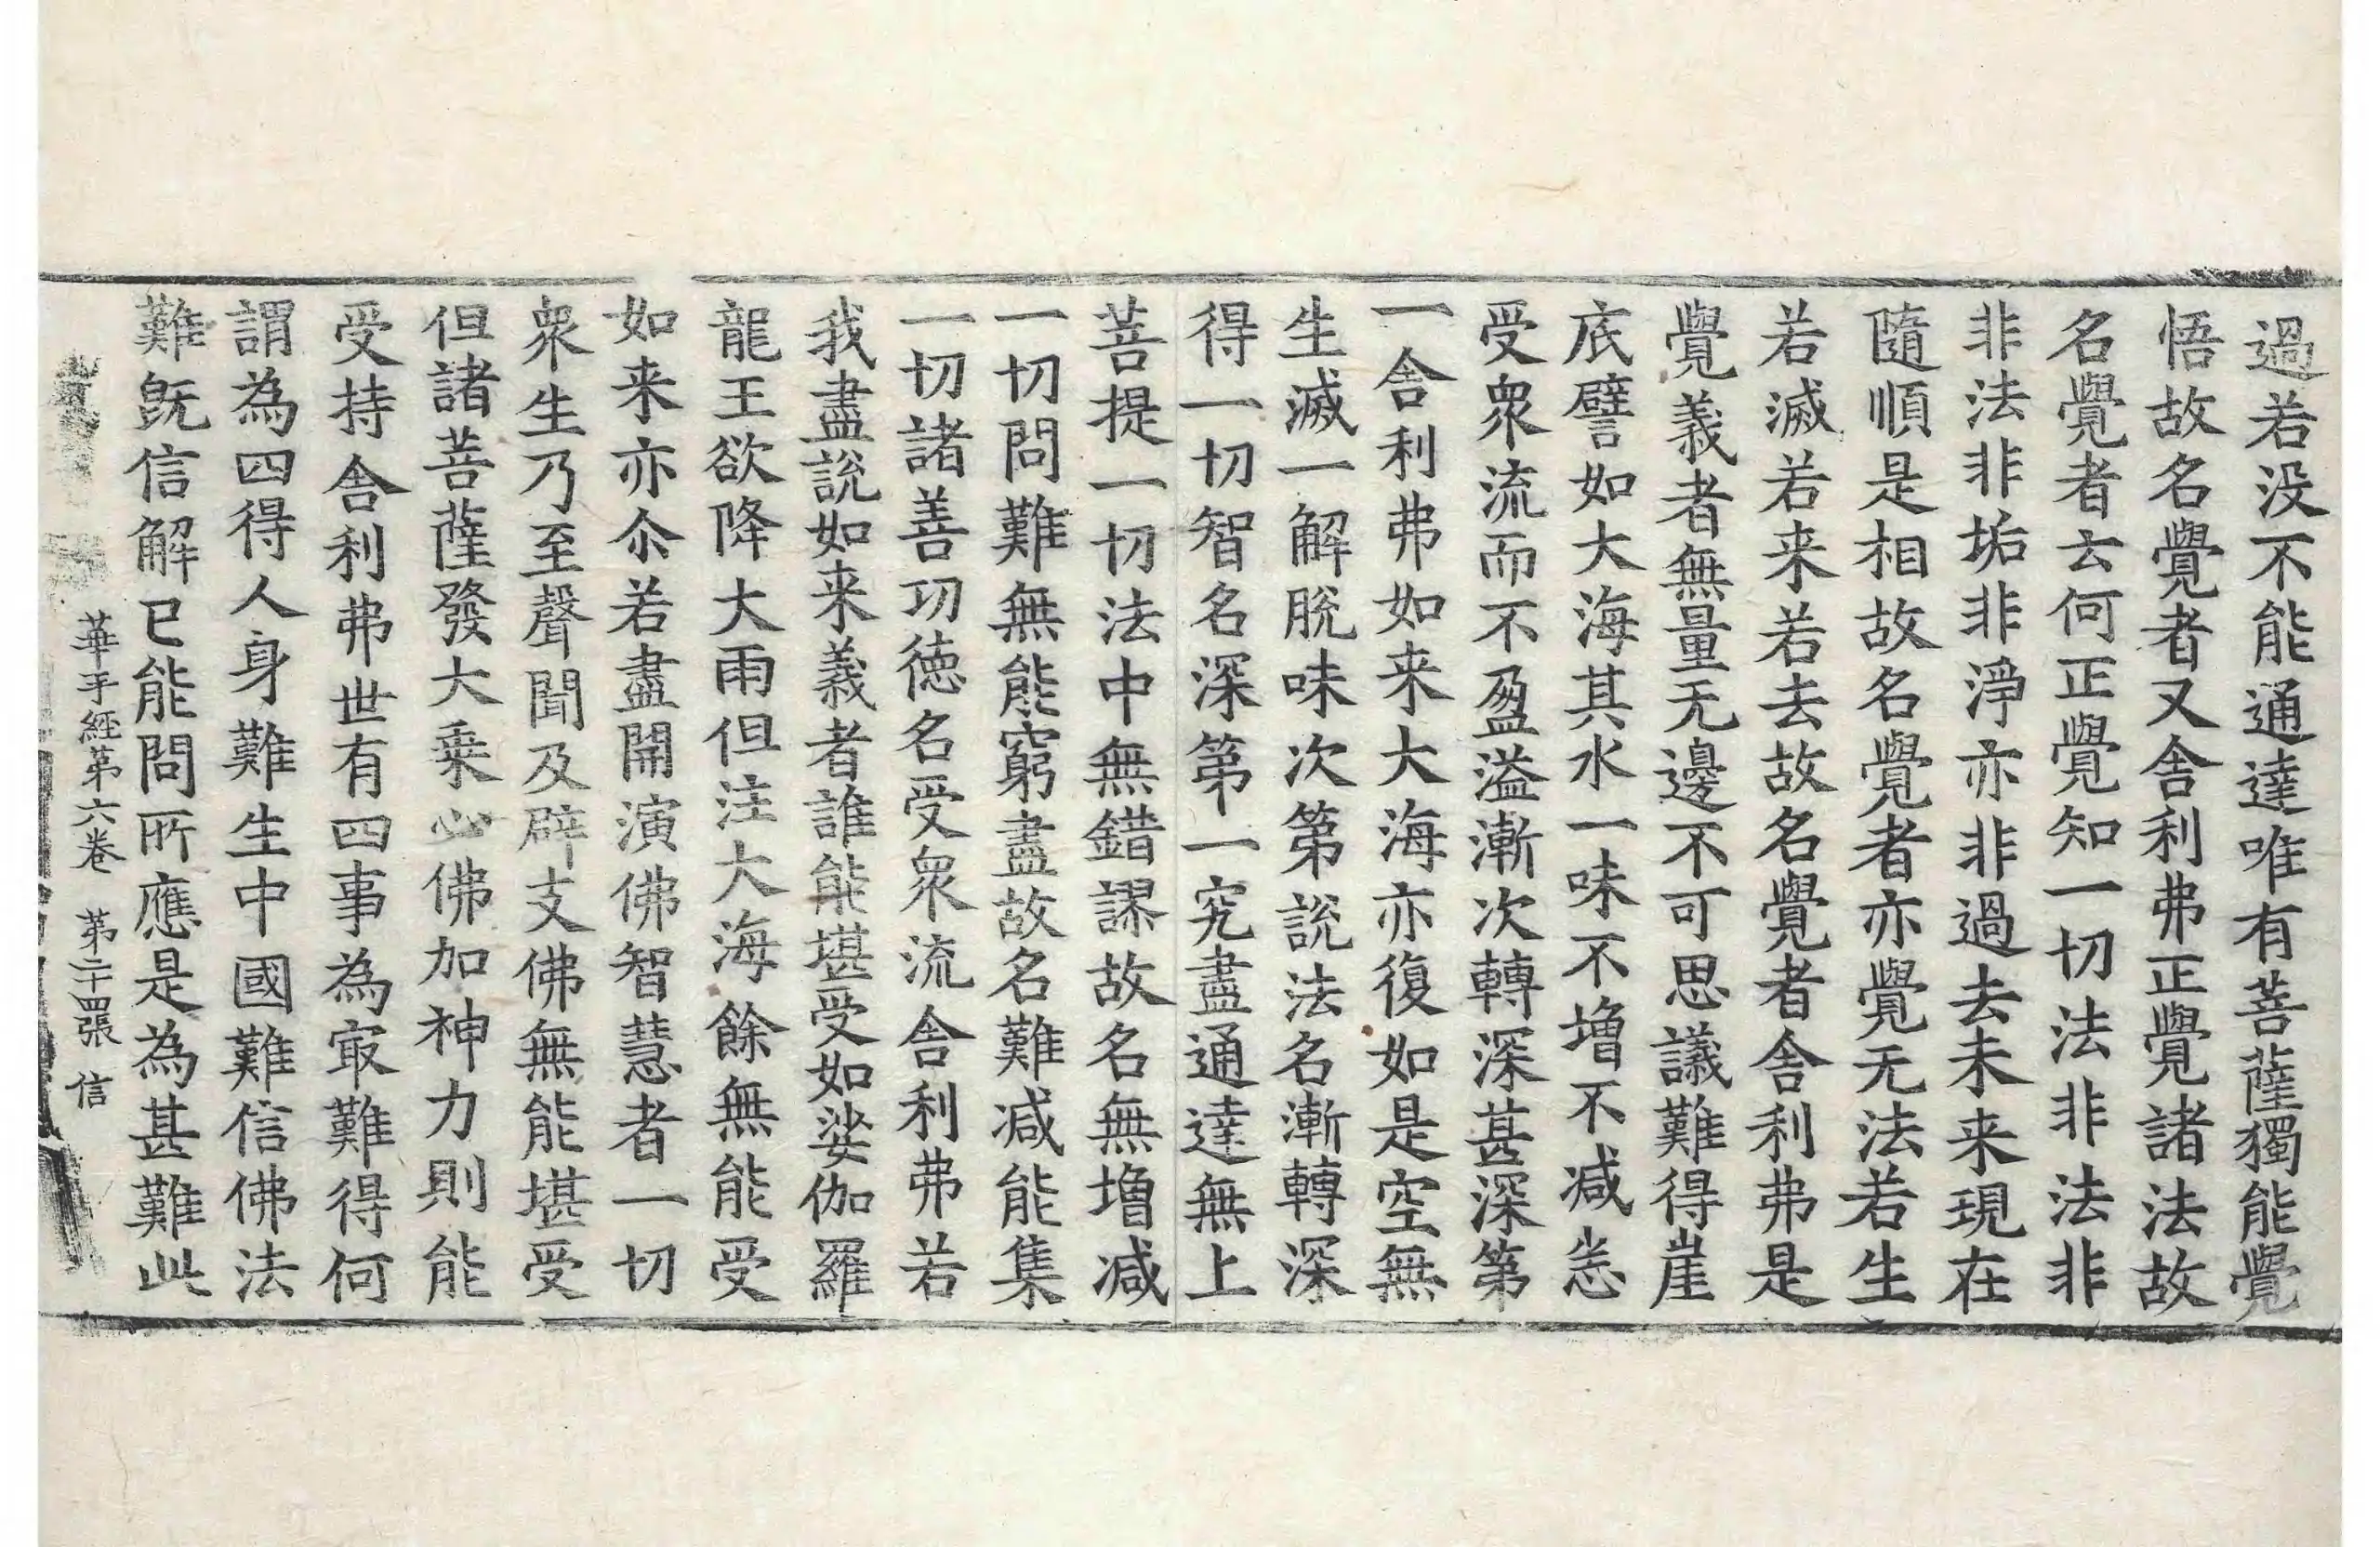 過若没不能通達唯有菩薩獨能覺
悟故名覺者又舎利弗正覺諸法故
名覺者云何正覺知一切法非法非
非法非垢非淨亦非過去未来現在
隨順是相故名覺者亦覺无法若生
若滅若来若去故名覺者舎利弗是
覺義者無量无邊不可思議難得崖
底譬如大海其水一味不增不減悉
受衆流而不盈溢漸次轉深甚深第
一舎利弗如来大海亦復如是空無
生滅一解脫味次第説法名漸轉深
得一切智名深第一究盡通達無上
菩提一切法中無錯謬故名無增減
一切問難無能窮盡故名難減能集
一切諸善功徳名受衆流舎利弗若
我盡説如来義者誰能堪受如娑伽羅
龍王欲降大雨但注大海餘無能受
如来亦尒若盡開演佛智慧者一切
衆生乃至聲聞及辟支佛無能堪受
但諸菩薩發大乗心佛加神力則能
受持舎利弗世有四事為㝡難得何
謂為四得人身難生中國難信佛法
難既信解已能問所應是為甚難此
華手經第六卷 第二十四張 信